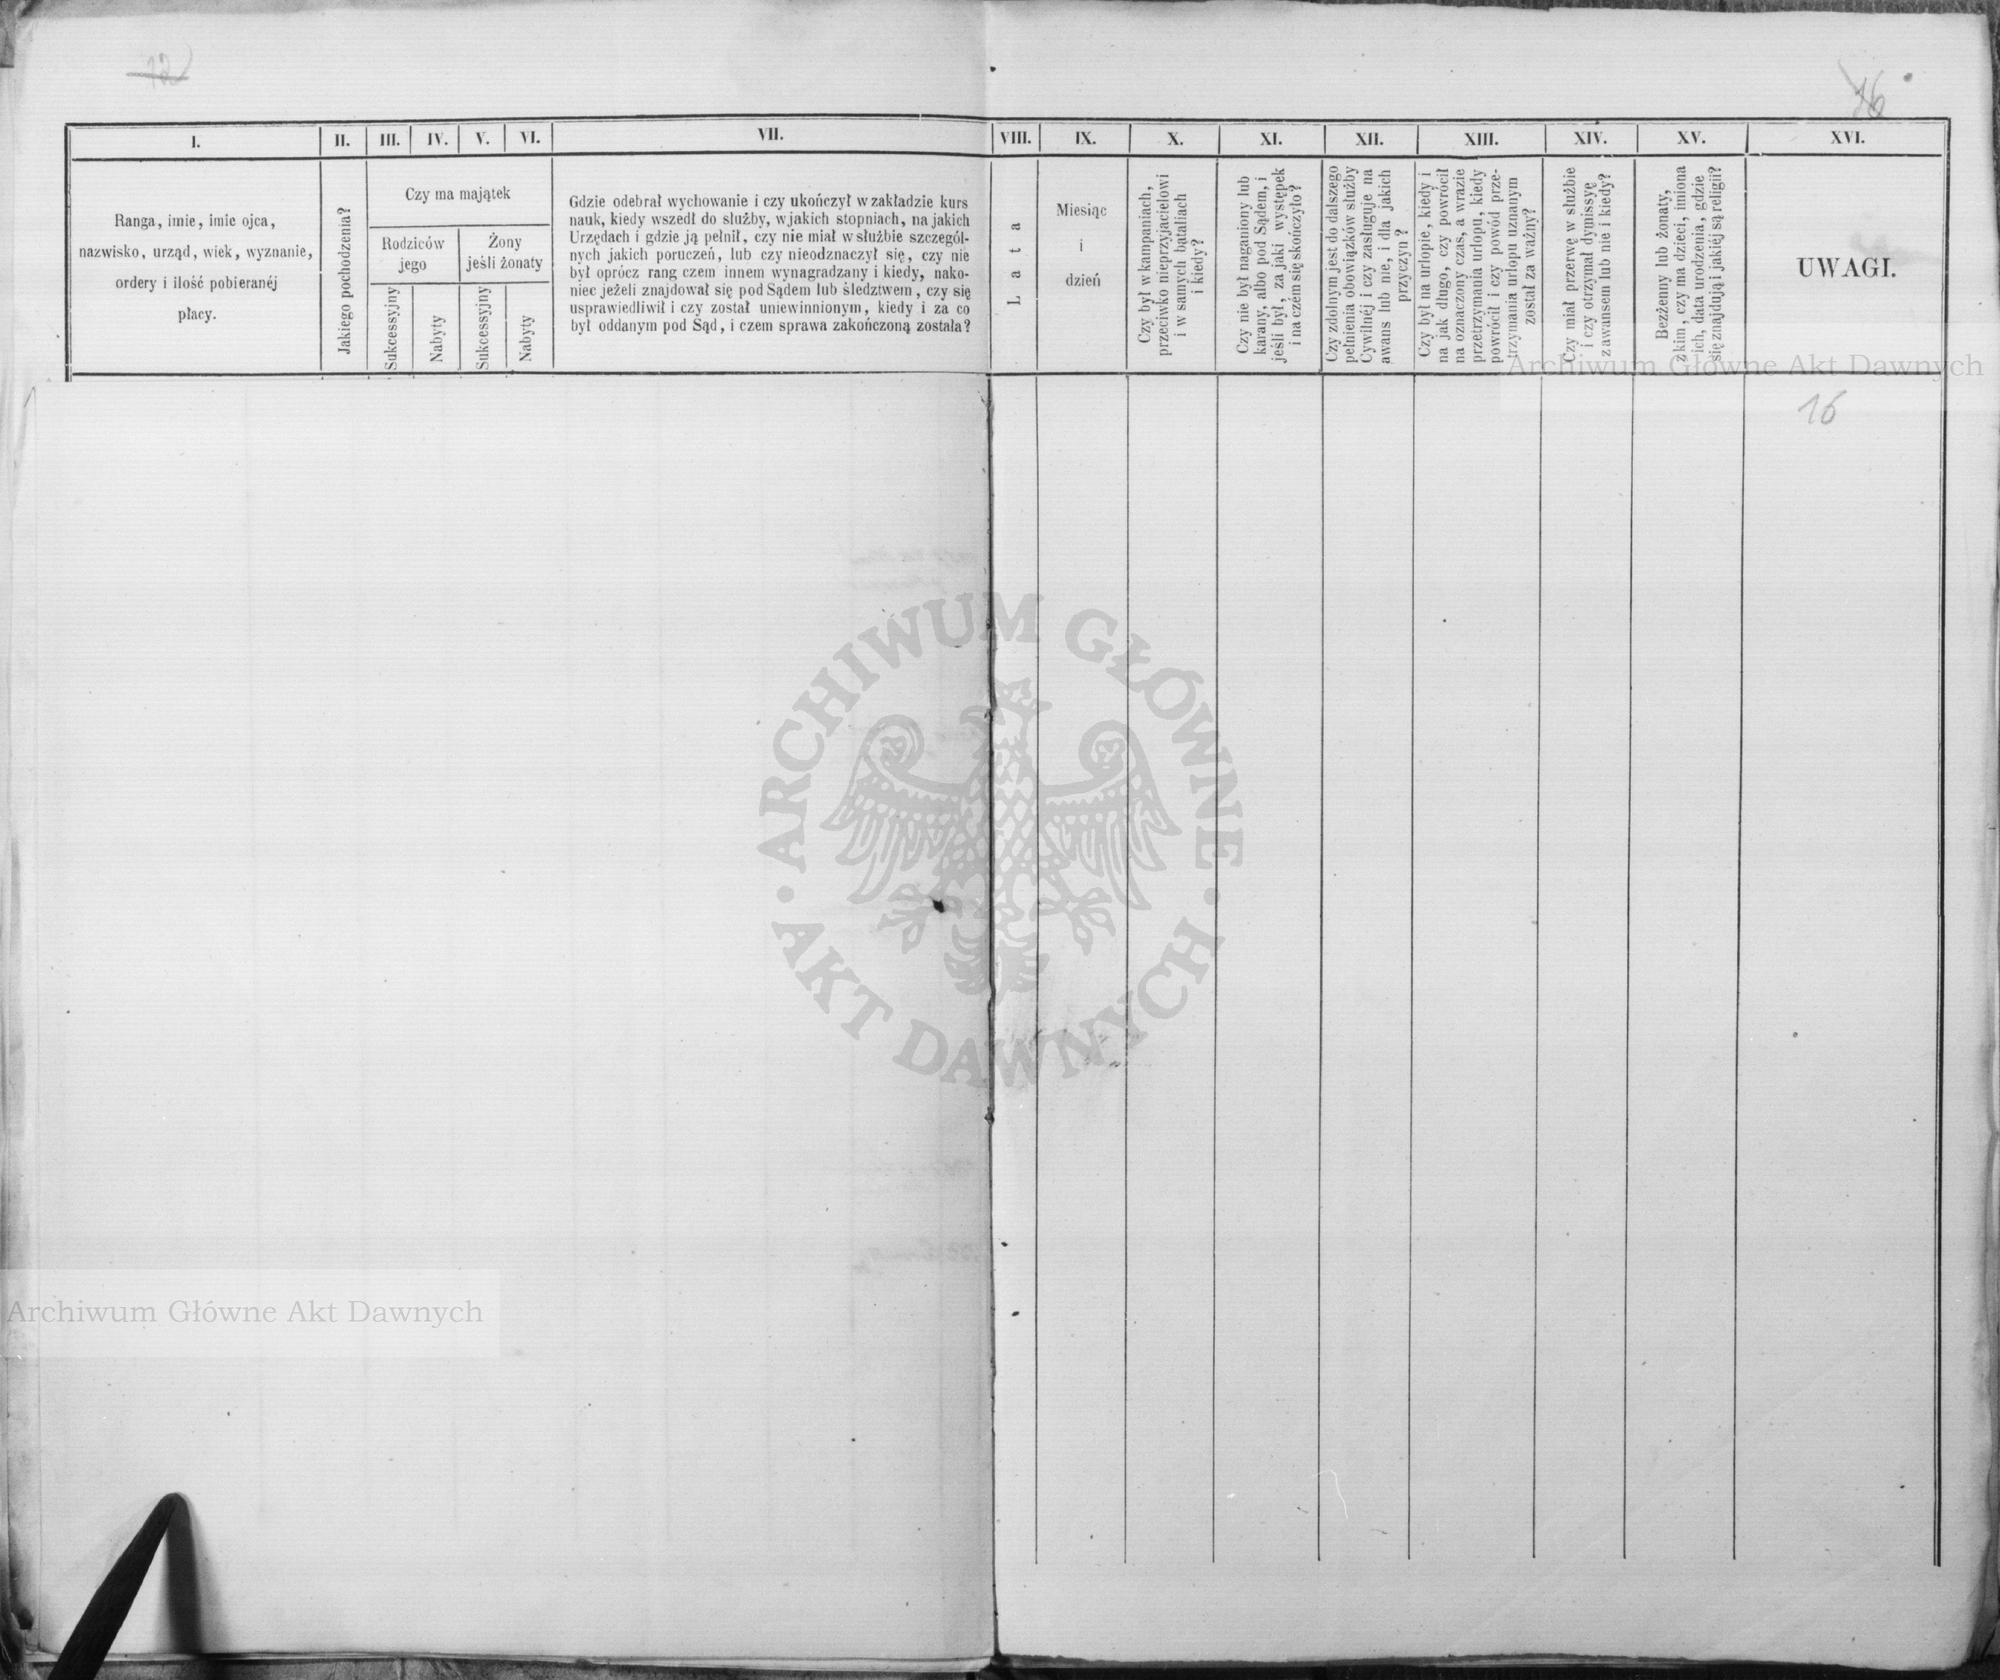 12
16
I.
II.
III.
IV.
V.
VI.
VII.
VIII.
IX.
X.
XI.
XII.
XIII.
XIV.
XV.
XVI.
Ranga, imie, imie ojca,
nazwisko, urząd, wiek, wyznanie,
ordery i ilość pobieranéj
płacy.
Jakiego pochodzenia?
Czy ma majątek
Rodziców
jego
Żony
jeśli żonaty
Sukcessyjny
Nabyty
Sukcessyjny
Nabyty
Gdzie odebrał wychowanie i czy ukończył w zakładzie kurs
nauk, kiedy wszedł do służby, w jakich stopniach, na jakich
Urzędach i gdzie ją pełnił, czy nie miał w służbie szczegól-
nych jakich poruczeń, lub czy nieodznaczył się, czy nie
był oprócz rang czem innem wynagradzany i kiedy, nako-
niec jeżeli znajdował się pod Sądem lub śledztwem, czy się
usprawiedliwił i czy został uniewinnionym, kiedy i za co
był oddanym pod Sąd, i czem sprawa zakończoną została?
Lata
Miesiąc
i
dzień
Czy był w kampaniach,
przeciwko nieprzyjacielowi
i w samych bataliach
i kiedy?
Czy nie był naganiony lub
karany, albo pod Sądem, i
jeśli był, za jaki występek
i na czém się skończyło?
Czy zdolnym jest do dalszego
pełnienia obowiązków służby
Cywilnéj i czy zasługuje na
awans lub nie, i dla jakich
przyczyn?
Czy był na urlopie, kiedy i
na jak długo, czy powrócił
na oznaczony czas, a w razie
przetrzymania urlopu, kiedy
powrócił i czy powód prze-
trzymania urlopu uznanym
został za ważny?
Czy miał przerwę w służbie
i czy otrzymał dymissyę
z awansem lub nie i kiedy?
Bezżenny lub żonaty,
z kim, czy ma dzieci, imiona
ich, data urodzenia, gdzie
się znajdują i jakiéj są religii?
UWAGI.
Archiwum Główne Akt Dawnych
16
ARCHIWUM GŁÓWNE
AKT DAWNYCH
Archiwum Główne Akt Dawnych